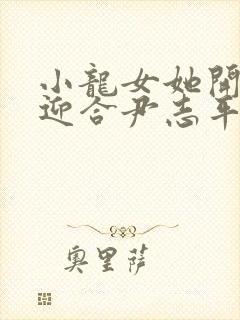 小龍女她開
迎合尹志平
奧里薩